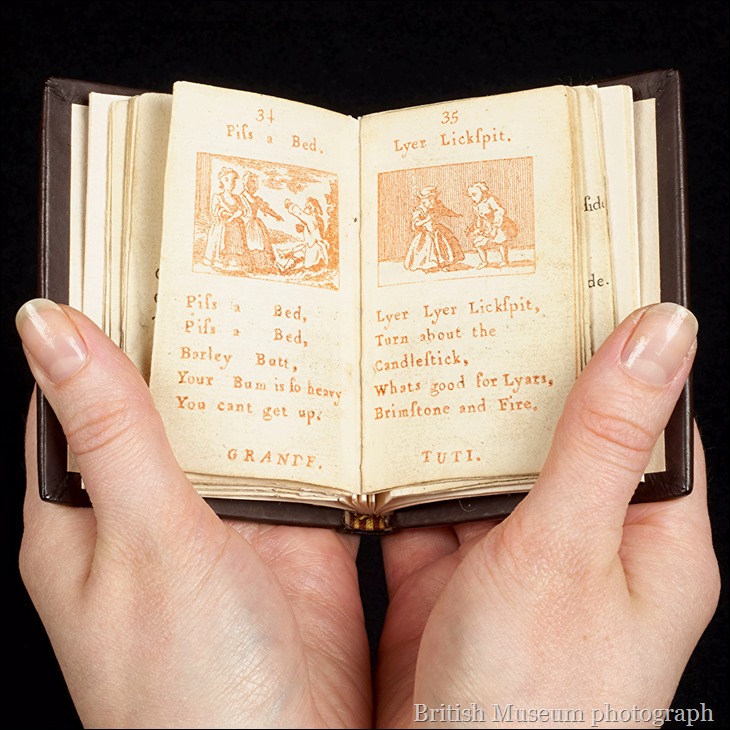 34
Piſs a Bed.
Piſs a Bed,
Piſs a Bed,
Barley Butt,
Your Bum is ſo heavy
You cant get up.
GRANDE.
35
Lyer Lickſpit.
Lyer Lyer Lickſpit,
Turn about the
Candleſtick,
Whats good for Lyars,
Brimſtone and Fire.
TUTI.
ſide
de.
British Museum photograph